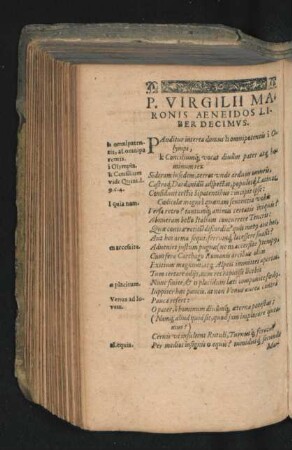 P. VIRGILII MA-
RONIS AENEIDOS LI-
BER DECIMVS.
PAnditur interea domus omnipotentis
Olympi,
Conciliumq; vocat diuûm pater atq; ho-
minum rex
Sideream in sedem, terras vnde arduus omneis,
Castraq; Dardanidûm aspectat, populosq; Latinos.
Considunt tectis bipatentibus: incipit ipse:
Cælicolæ magni, quianam sententia vobis
Versa retro? tantumq; animis certatis iniquis?
Abnueram bello Italiam concurrere Teucris:
Quæ contra vetitũ discordia? quis metus aut hos
Aut hos arma sequi, ferrumq; lacessere suasit?
Adueniet iustum pugnæ, ne arcessite, tempus,
Cum fera Carthago Romanis arcibus olim
Exitium magnum, atq; Alpeis immittet apertas.
Tum certare odijs, tum res rapuisse licebit.
Nunc sinite, &
Iuppiter hæc paucis. at non Venus aurea contra
Pauca refert:
O pater, ô hominum diuûmq; æterna potestas:
(Namq; aliud quid sit, quod iam implorare quea-
mus?)
Cernis vt insultent Rutuli, Turnusq; feratur
Per medios insignis
omnipoten-
Olympia.
Concilium
vide
quia nam.
arcessite.
placitum.
Venus ad Io-
uem.
equis.